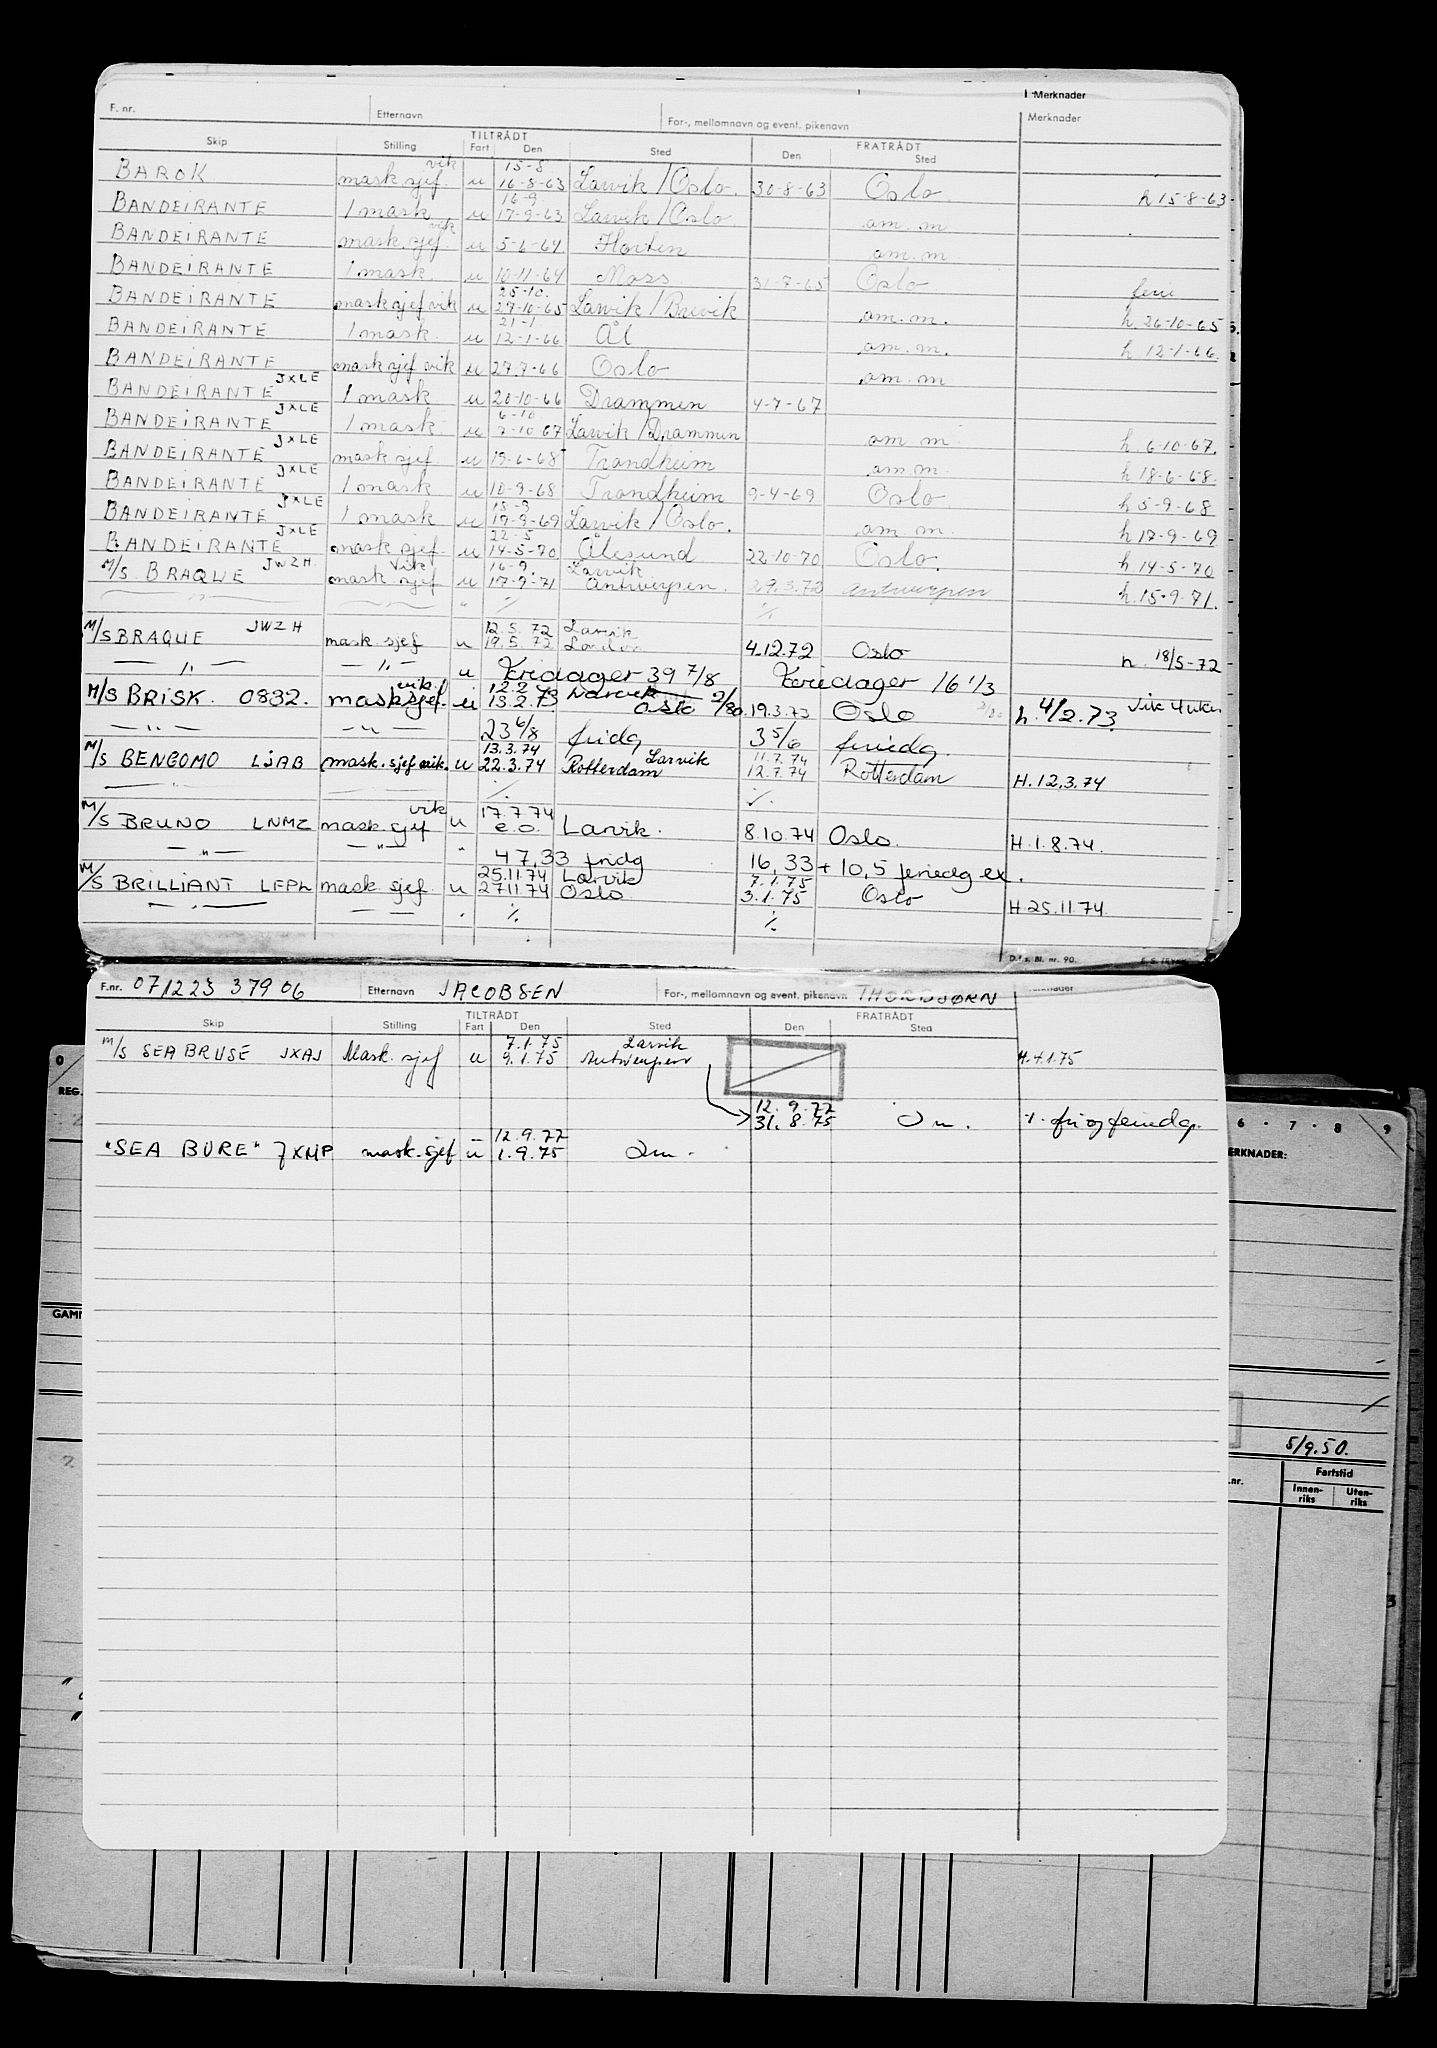 Merknader
F. nr. Etternavn For-, mellomnavn og event. pikenavn Merknader
TILTRÅDT FRATRÅDT
Skip Stilling Fart Den Sted Den Sted
vik 15-8
BAROK mask sjef u 16-8-63 Larvik/Oslo. 30-8-63 Oslo h 15-8-63
16-9
BANDEIRANTE 1 mask u 17-9-63 Larvik/Oslo am. m
vik
BANDEIRANTE mask. sjef u 5-6-64 Horten am. m
BANDEIRANTE 1 mask. u 10-11-64 Moss 31-7-65 Oslo ferie
25-10.
BANDEIRANTE mask sjef vik u 27-10-65 Larvik/Brevik am. m. h. 26-10-65
21-1
BANDEIRANTE 1 mask. u 12-1-66 Ål am. m. h 12-1-66.
BANDEIRANTE mask sjef vik u 27.7-66 Oslo am. m
BANDEIRANTE JXLE 1 mask u 20-10-66 Drammen 4-7-67
6-10
BANDEIRANTE JXLE 1 mask u 7-10 67 Larvik/Drammen am m h. 6-10-67.
BANDEIRANTE JXLE mask sjef u 19-6-68 Trondheim am m. h 18-6-68.
BANDEIRANTE JXLE 1 mask u 10-9-68 Trondheim 9-4-69 Oslo h 5-9-68
18-9
BANDEIRANTE JXLE 1 mask u 19-9-69 Larvik/Oslo. am m h 17-9-69
22-5
BANDEIRANTE JXLE mask sjef u 14-5-70 Ålesund 22-10-70 Oslo. h 14-5-70
vik 16-9. Larvik
M/S. BRAQUE JWZH. mask. sjef u 17-9-71 Antwerpen. 29.3.72 Antwerpen h. 15-9-71.
" % %
12.5.72 Larvik
M/S BRAQUE JWZH mask. sjef u 19.5.72 London 4.12.72 Oslo h. 18/5-72
— " — — " — u Feriedager 39 7/8 Feriedager 16 1/3
vik. 12.2.73 Larvik
M/S BRISK. 0832. mask sjef. u 13.2.73 Oslo 2/80 19.3.73 Oslo h. 4/2.73 vik 4 uker
— " — — " — 23 6/8 fridg 3 5/6 feriedg.
13.3.74 Larvik 11.7.74
M/S BENGOMO LJAB mask. sjef vik. u 22.3.74 Rotterdam 12.7.74 Rotterdam H.12.3.74
% %
vik 17.7.74
M/S BRUNO LNMZ mask. sjef u e.o. Larvik. 8.10.74 Oslo. H.1.8.74.
— " — — " — " 47,33 fridg 16,33 + 10,5 feriedg ex.
25.11.74 Larvik 7.1.75
M/S BRILLIANT LEPL mask. sjef u 27.11.74 Oslo 3.1.75 Oslo H.25.11.74.
— " — — — % %
D.f.s. Bl. nr. 90.
F.nr. 071223 37906 Etternavn JACOBSEN For-, mellomnavn og event. pikenavn THORBJØRN Merknader
TILTRÅDT FRATRÅDT
Skip Stilling Fart Den Sted Den Sted
7.1.75 Larvik
M/S SEA BRUSE JXAJ Mask. sjef u 9.1.75 Antwerpen H.4.1.75
12.9.77
31.8.75 Om. %. fri og feriedg.
12.9.77
"SEA BURE" JXMP mask. sjef u 1.9.75 Om.
0
REG.
6 • 7 • 8 9
ERKNADER:
GAMM
5/9.50.
.nr. Fartstid
Innen-riks Uten-riks